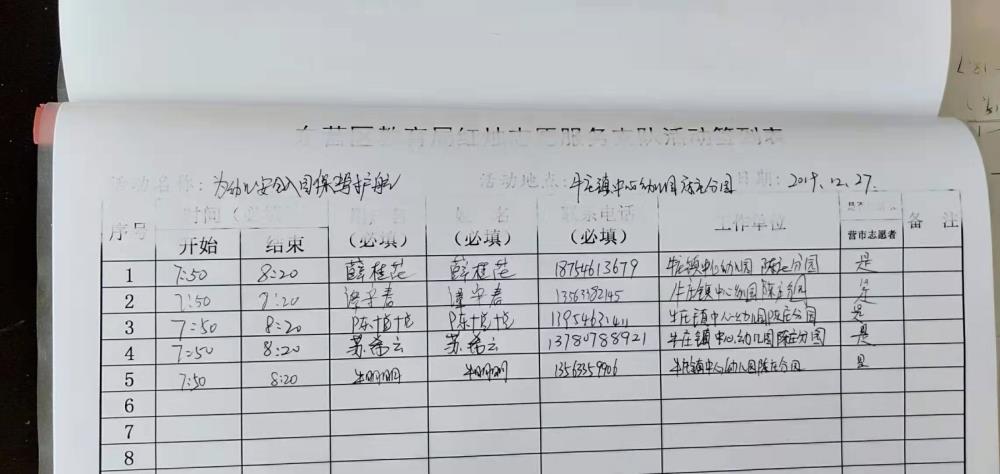 东营区教育局红烛志愿服务支队活动签到表
活动名称：为幼儿安全入园保驾护航 活动地点：牛庄镇中心幼儿园陈庄分园 日期：2019.12.27.
序号 时间（必填） 用户名 姓名 联系电话 工作单位 备注
开始 结束 （必填） （必填） （必填） 营市志愿者
1 7:50 8:20 薛桂花 薛桂花 18754613679 牛庄镇中心幼儿园陈庄分园 是
2 7:50 7:20 13563582145 牛庄镇中心幼儿园陈庄分园 是
3 7:50 8:20 陈悦悦 陈悦悦 牛庄镇中心幼儿园陈庄分园 是
4 7:50 8:20 苏希云 苏希云 13780788921 牛庄镇中心幼儿园陈庄分园 是
5 7:50 8:20 牛明明 牛明明 13563559906 牛庄镇中心幼儿园陈庄分园 是
6
7
8